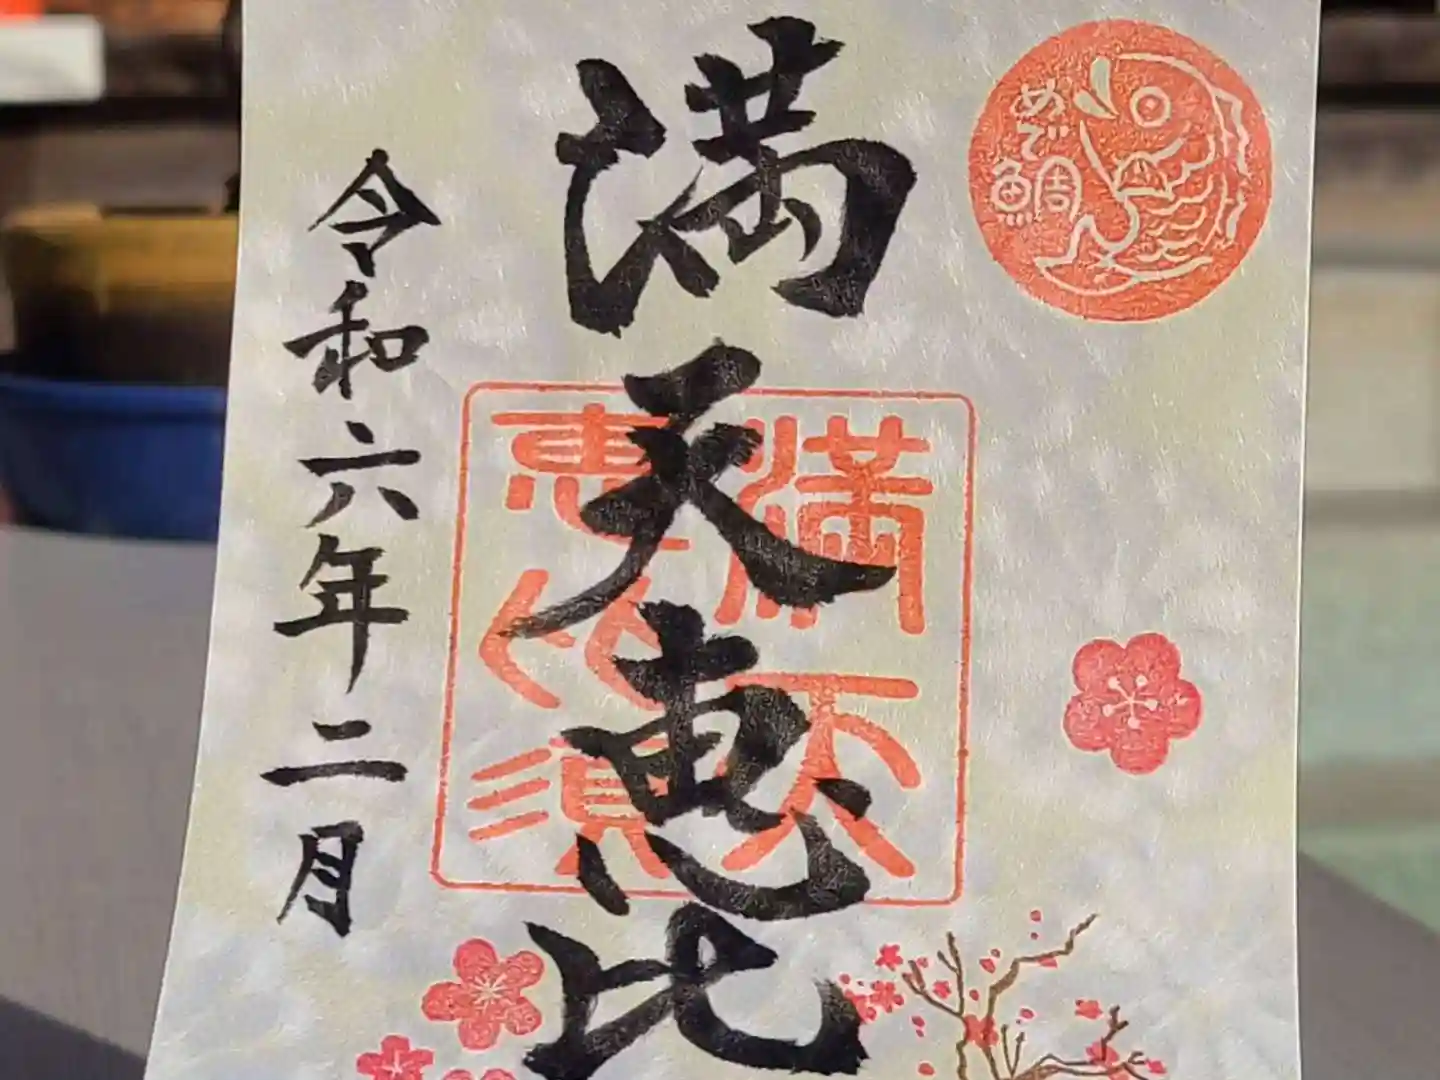 めで
鯛
満天恵比
満天
恵比須
令和六年二月